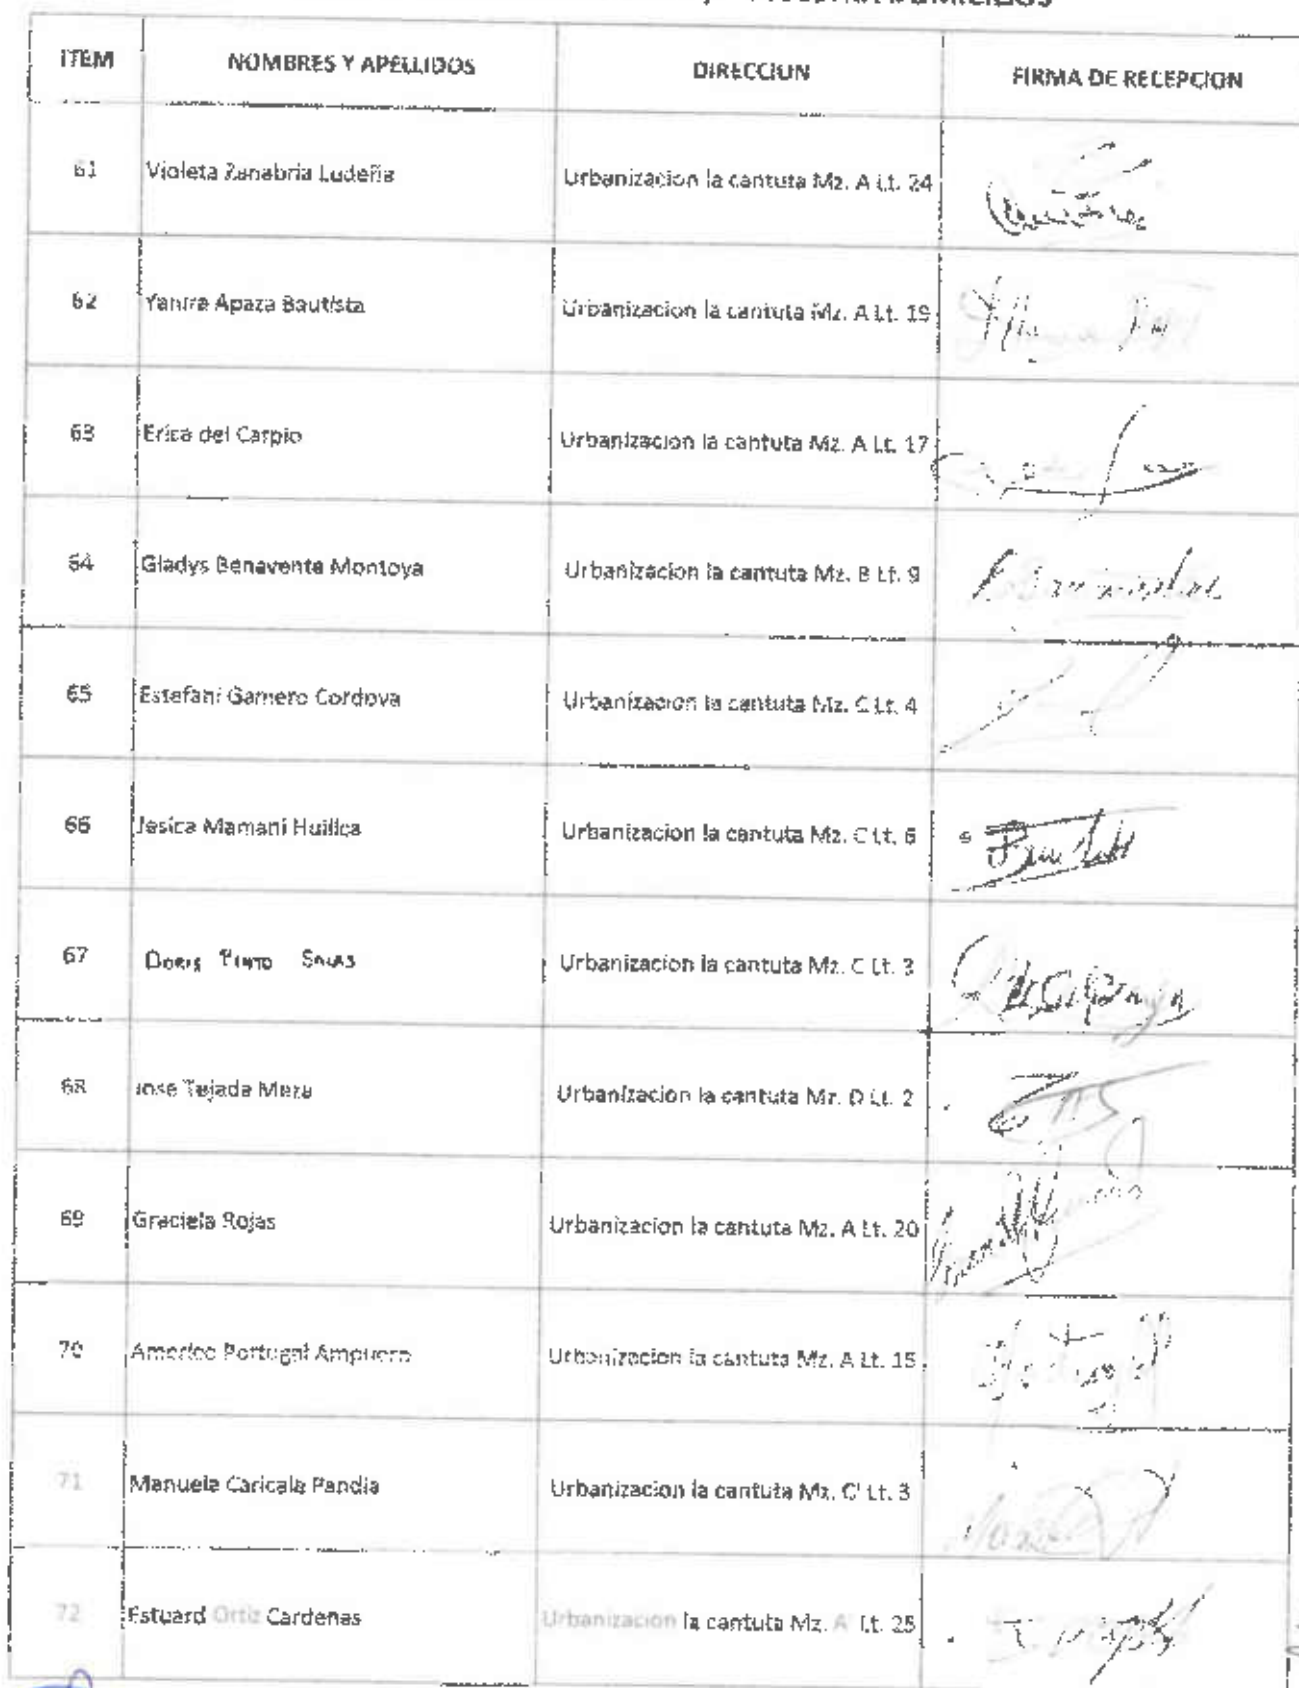 DOMICILIOS
ITEM NOMBRES Y APELLIDOS DIRECCION FIRMA DE RECEPCION
61 Violeta Zanabria Ludeña Urbanizacion la cantuta Mz. A Lt. 24
62 Yanira Apaza Bautista Urbanizacion la cantuta Mz. A Lt. 19
63 Erica del Carpio Urbanizacion la cantuta Mz. A Lt. 17
64 Gladys Benavente Montoya Urbanizacion la cantuta Mz. B Lt. 9
65 Estefani Gamero Cordova Urbanizacion la cantuta Mz. C Lt. 4
66 Jesica Mamani Huillca Urbanizacion la cantuta Mz. C Lt. 6
67 Doris Pinto Salas Urbanizacion la cantuta Mz. C Lt. 3
68 Jose Tejada Meza Urbanizacion la cantuta Mz. D Lt. 2
69 Graciela Rojas Urbanizacion la cantuta Mz. A Lt. 20
70 Americo Portugal Ampuero Urbanizacion la cantuta Mz. A Lt. 15
71 Manuela Caricala Pandia Urbanizacion la cantuta Mz. C' Lt. 3
72 Estuard Ortiz Cardenas Urbanizacion la cantuta Mz. A Lt. 25